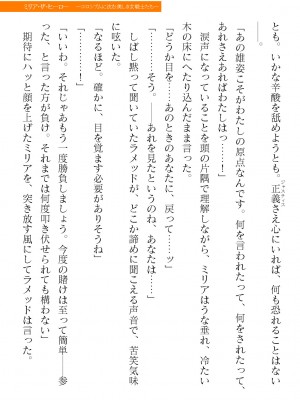 とも。いかな辛酸を舐めようとも。正義さえ心にいれば、何も恐れることはない
「あの雄姿こそがわたしの原点なんです……。何を言われたって、何をされたって、
あれさえあればわたしはっ……！」
　涙声になっていることを頭の片隅で理解しながら、ミリアはうな垂れ、冷たい
木の床にへたり込んだまま言った。
「どうか目を……あのときのあなたに、戻って……ッ」
「……そう。……あれを見たというのね、あなたは……」
　しばし黙って聞いていたラメッドが、どこか諦めに聞こえる声音で、苦笑気味
に呟いた。
「なるほど。確かに、目を覚ます必要がありそうね」
「……！」
「いいわ。それじゃあもう一度勝負しましょう。今度の賭けは至って簡単――参
った、と言った方が負け。それまでは何度叩き伏せられても構わない」
　期待にハッと顔を上げたミリアを、突き放す風にしてラメッドは言った。